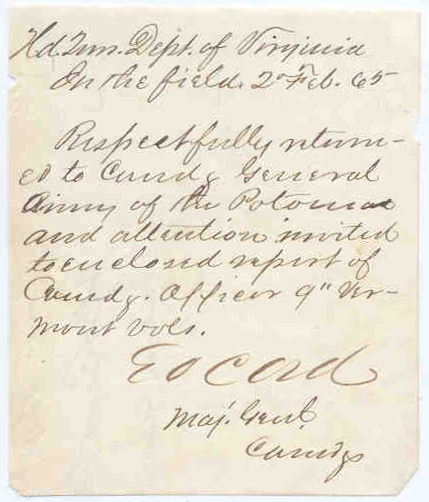 Hd. Qurs. Dept. of Virginia
In the field. 2" Feb. 65
Respectfully return-
ed to Comdg General
Army of the Potomac
and attention invited
to enclosed report of
Comdg. Officer 9" Ver-
mont Vols.
E O C Ord
Maj. Genl.
Comdg